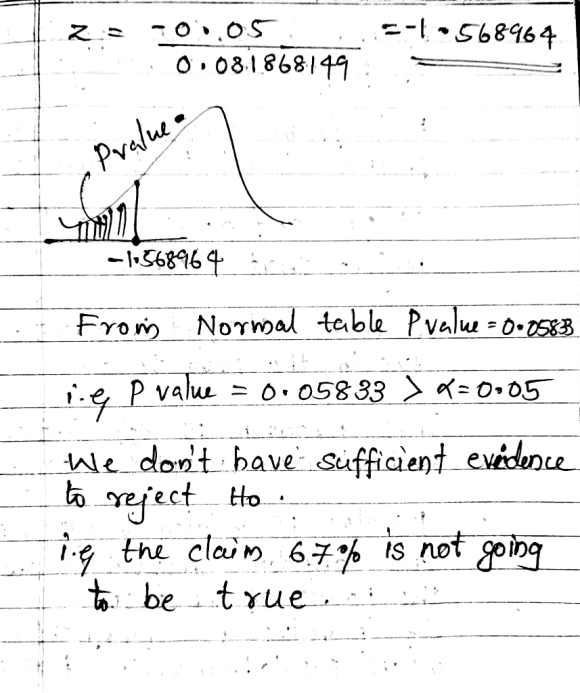 z = -0.05 / 0.031868149 = -1.568964
Pvalue
-1.568964
From Normal table Pvalue = 0.0583
i.e P value = 0.05833 > α = 0.05
We don't have sufficient evidence
to reject Ho.
i.e the claim 67% is not going
to be true.